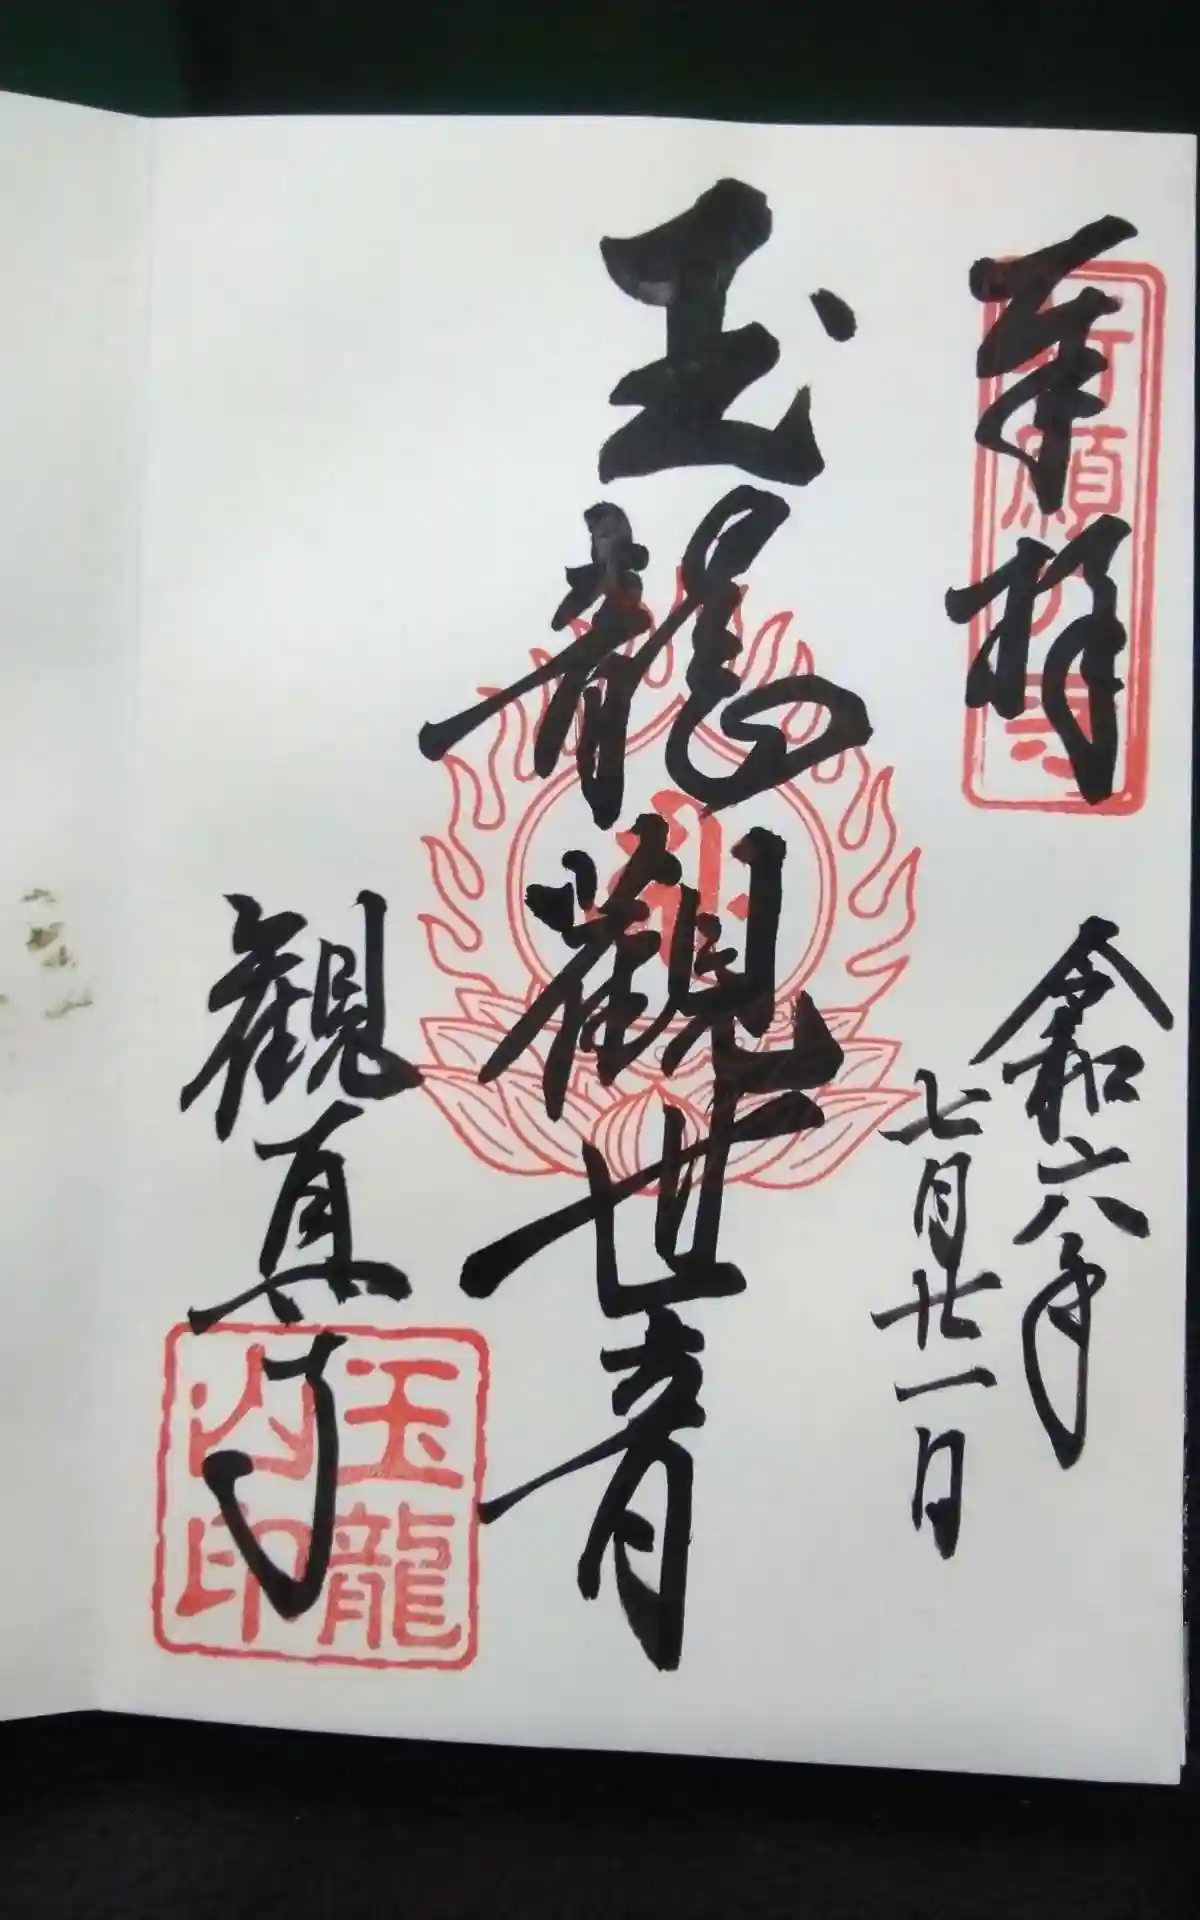 奉拝
令和六年
七月廿一日
玉龍觀世音
観真寺
玉龍
山印